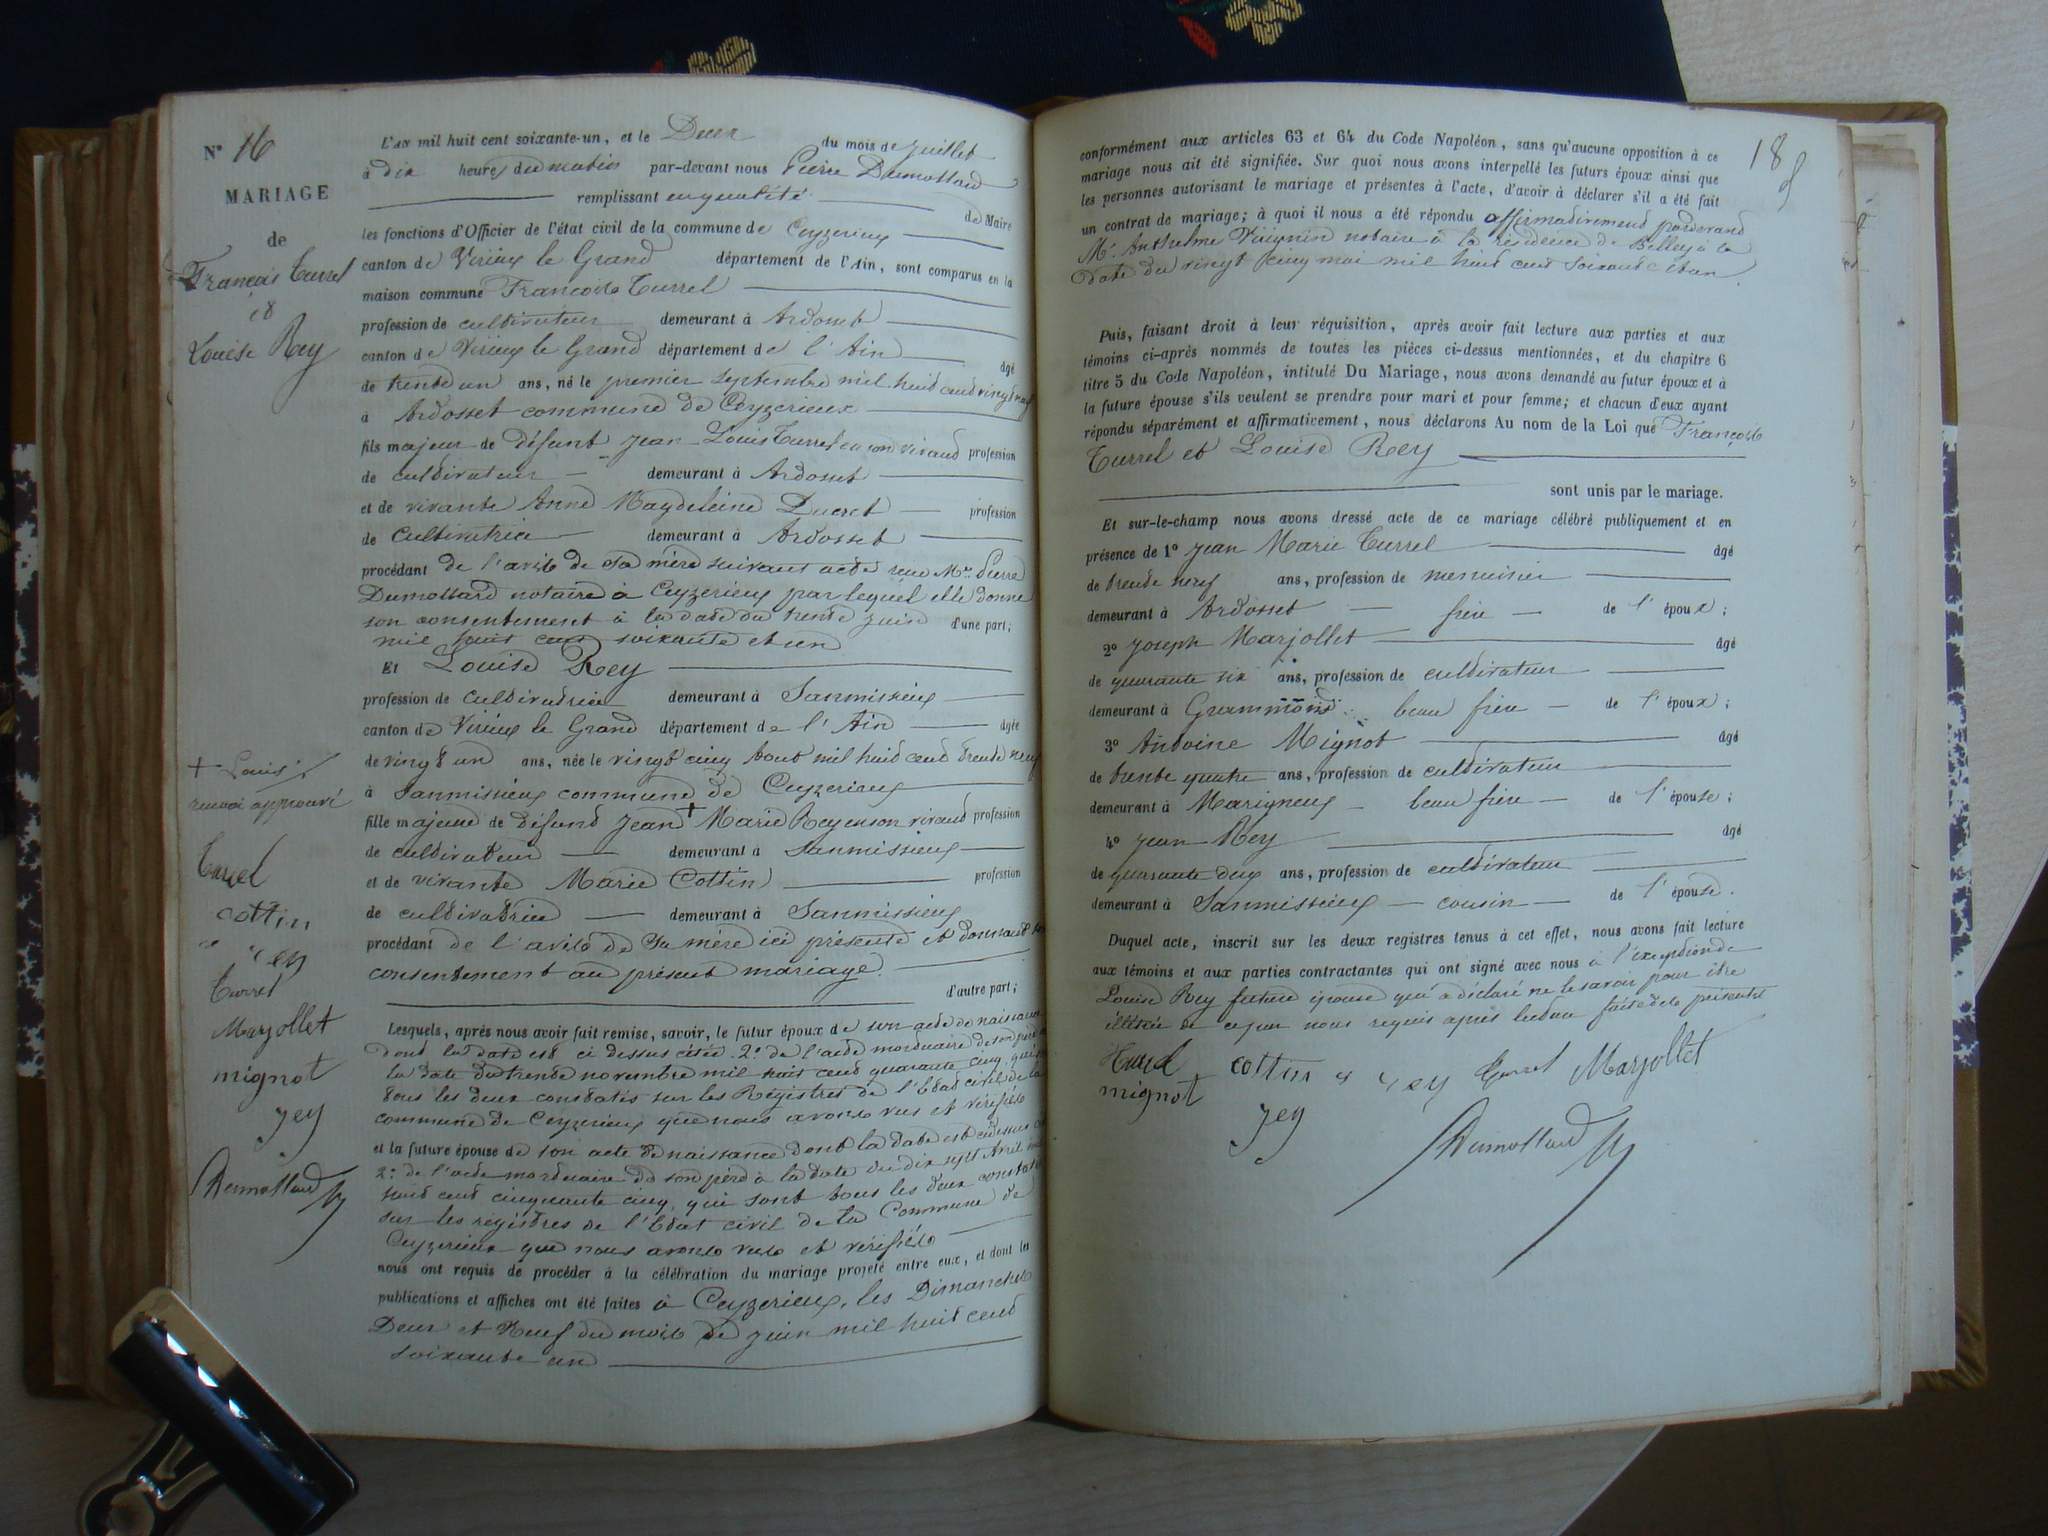 N° 16
MARIAGE
de
François Turrel
et
Louise Rey
+ Louis
renvoi approuvé
Turrel
cottin
Rey
Turrel
Marjollet
mignot
rey
Dumollard
L'AN mil huit cent soixante-un, et le Deux du mois de juillet
à dix heures du matin par-devant nous Pierre Dumollard
remplissant en qualité de Maire
les fonctions d'Officier de l'état civil de la commune de Ceyzerieux
canton de Virieux le Grand département de l'Ain, sont comparus en la
maison commune François Turrel
profession de cultivateur demeurant à Ardosset
canton de Virieux le Grand département de l'Ain âgé
de trente un ans, né le premier septembre mil huit cent vingt neuf
à Ardosset commune de Ceyzerieux
fils majeur de défunt Jean Louis Turrel en son vivand profession
de cultivateur demeurant à Ardosset
et de vivante Anne Magdeleine Ducret profession
de Cultivatrice demeurant à Ardosset
procédant de l'avis de sa mère suivant acte reçu Me Pierre
Dumollard notaire à Ceyzerieux par lequel elle donne
son consentement à la date du trente juin d'une part;
mil huit cent soixante et un
Et Louise Rey
profession de Cultivatrice demeurant à Sanmissieux
canton de Virieux le Grand département de l'Ain âgée
de vingt un ans, née le vingt cinq août mil huit cent trente neuf
à Sanmissieux commune de Ceyzerieux
fille majeure de défund Jean + Marie Rey en son vivand profession
de cultivateur demeurant à Sanmissieux
et de vivante Marie Cottin profession
de cultivatrice demeurant à Sanmissieux
procédant de l'avis de sa mère ici présente et donnant son
consentement au présent mariage.
d'autre part;
Lesquels, après nous avoir fait remise, savoir, le futur époux de son acte de naissance
dont la date est ci dessus citée 2° de l'acte mortuaire de son père à
la date du trente novembre mil huit cent quarante cinq, qui sont
tous les deux constatés sur les Régistres de l'Etat civil de la
commune de Ceyzerieux que nous avons vus et vérifiés
et la future épouse de son acte de naissance dont la date est ci dessus
2° de l'acte mortuaire de son père à la date du dix sept Avril mil
huit cent cinquante cinq, qui sont tous les deux constatés
sur les régistres de l'Etat civil de la Commune de
Ceyzerieux que nous avons vus et vérifiés
nous ont requis de procéder à la célébration du mariage projeté entre eux, et dont les
publications et affiches ont été faites à Ceyzerieux, les Dimanches
Deux et Neuf du mois de juin mil huit cent
soixante un
18
conformément aux articles 63 et 64 du Code Napoléon, sans qu'aucune opposition à ce
mariage nous ait été signifiée. Sur quoi nous avons interpellé les futurs époux ainsi que
les personnes autorisant le mariage et présentes à l'acte, d'avoir à déclarer s'il a été fait
un contrat de mariage; à quoi il nous a été répondu affirmativement pardevand
Me Anthelme notaire à la résidence de Belley à la
date du vingt cinq mai mil huit cent soixante et un.
Puis, faisant droit à leur réquisition, après avoir fait lecture aux parties et aux
témoins ci-après nommés de toutes les pièces ci-dessus mentionnées, et du chapitre 6
titre 5 du Code Napoléon, intitulé Du Mariage, nous avons demandé au futur époux et à
la future épouse s'ils veulent se prendre pour mari et pour femme; et chacun d'eux ayant
répondu séparément et affirmativement, nous déclarons Au nom de la Loi que François
Turrel et Louise Rey
sont unis par le mariage.
Et sur-le-champ nous avons dressé acte de ce mariage célébré publiquement et en
présence de 1° Jean Marie Turrel âgé
de trente neuf ans, profession de menuisier
demeurant à Ardosset frère de l'époux;
2° Joseph Marjollet âgé
de quarante six ans, profession de cultivateur
demeurant à Grammond beau frère de l'époux;
3° Antoine Mignot âgé
de trente quatre ans, profession de cultivateur
demeurant à Marigneux beau frère de l'épouse;
4° Jean Rey âgé
de quarante deux ans, profession de cultivateur
demeurant à Sanmissieux cousin de l'épouse.
Duquel acte, inscrit sur les deux registres tenus à cet effet, nous avons fait lecture
aux témoins et aux parties contractantes qui ont signé avec nous à l'exception de
Louise Rey future épouse qui a déclaré ne le savoir pour être
illétrée de ce par nous requis après lecture faite de la présente
Turrel cottin Rey Turrel Marjollet
mignot rey
Dumollard